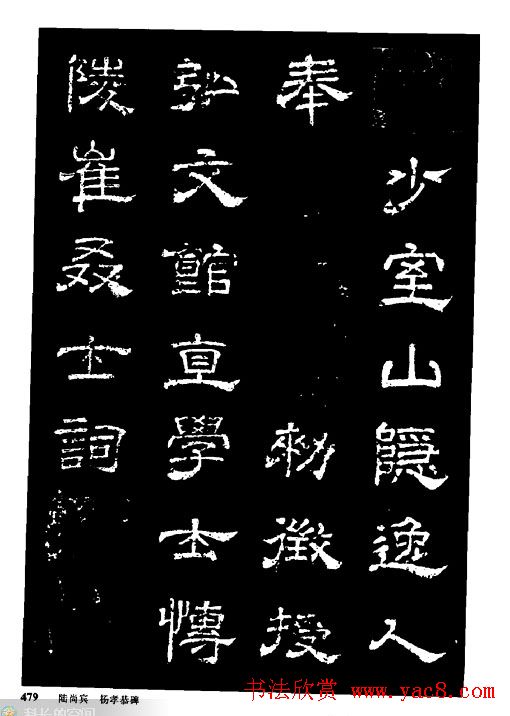 少室山隱逸人
奉 勑徵授
弘文館直學士愽
陵崔 士詞
479 陆尚宾 杨孝恭碑
书法欣赏 www.yac8.com
科长的空间